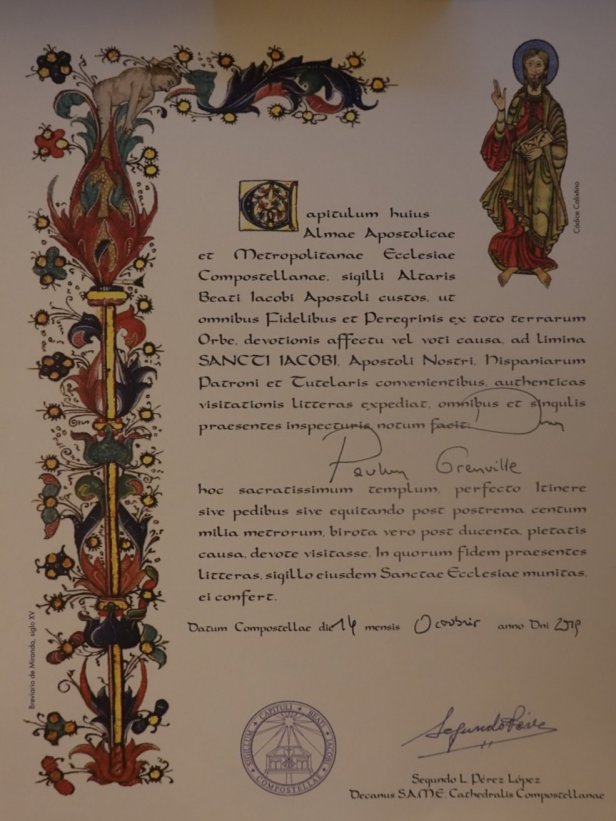 Capitulum huius
Almae Apostolicae
et Metropolitanae Ecclesiae
Compostellanae, sigilli Altaris
Beati Iacobi Apostoli custos, ut
omnibus Fidelibus et Peregrinis ex toto terrarum
Orbe, devotionis affectu vel voti causa, ad limina
SANCTI IACOBI, Apostoli Nostri, Hispaniarum
Patroni et Tutelaris convenientibus, authenticas
visitationis litteras expediat, omnibus et singulis
praesentes inspecturis, notum facit:
Grenville
hoc sacratissimum templum, perfecto Itinere
sive pedibus sive equitando post postrema centum
milia metrorum, birota vero post ducenta, pietatis
causa, devote visitasse. In quorum fidem praesentes
litteras, sigillo eiusdem Sanctae Ecclesiae munitas,
ei confert.
Datum Compostellae die 14 mensis Octobris anno Dni 2019
SIGILLUM CAPITULI BEATI IACOBI COMPOSTELLAE
Segundo L. Pérez López
Decanus S.A.M.E. Cathedralis Compostellanae
Breviario de Miranda, siglo XV
Códice Calixtino